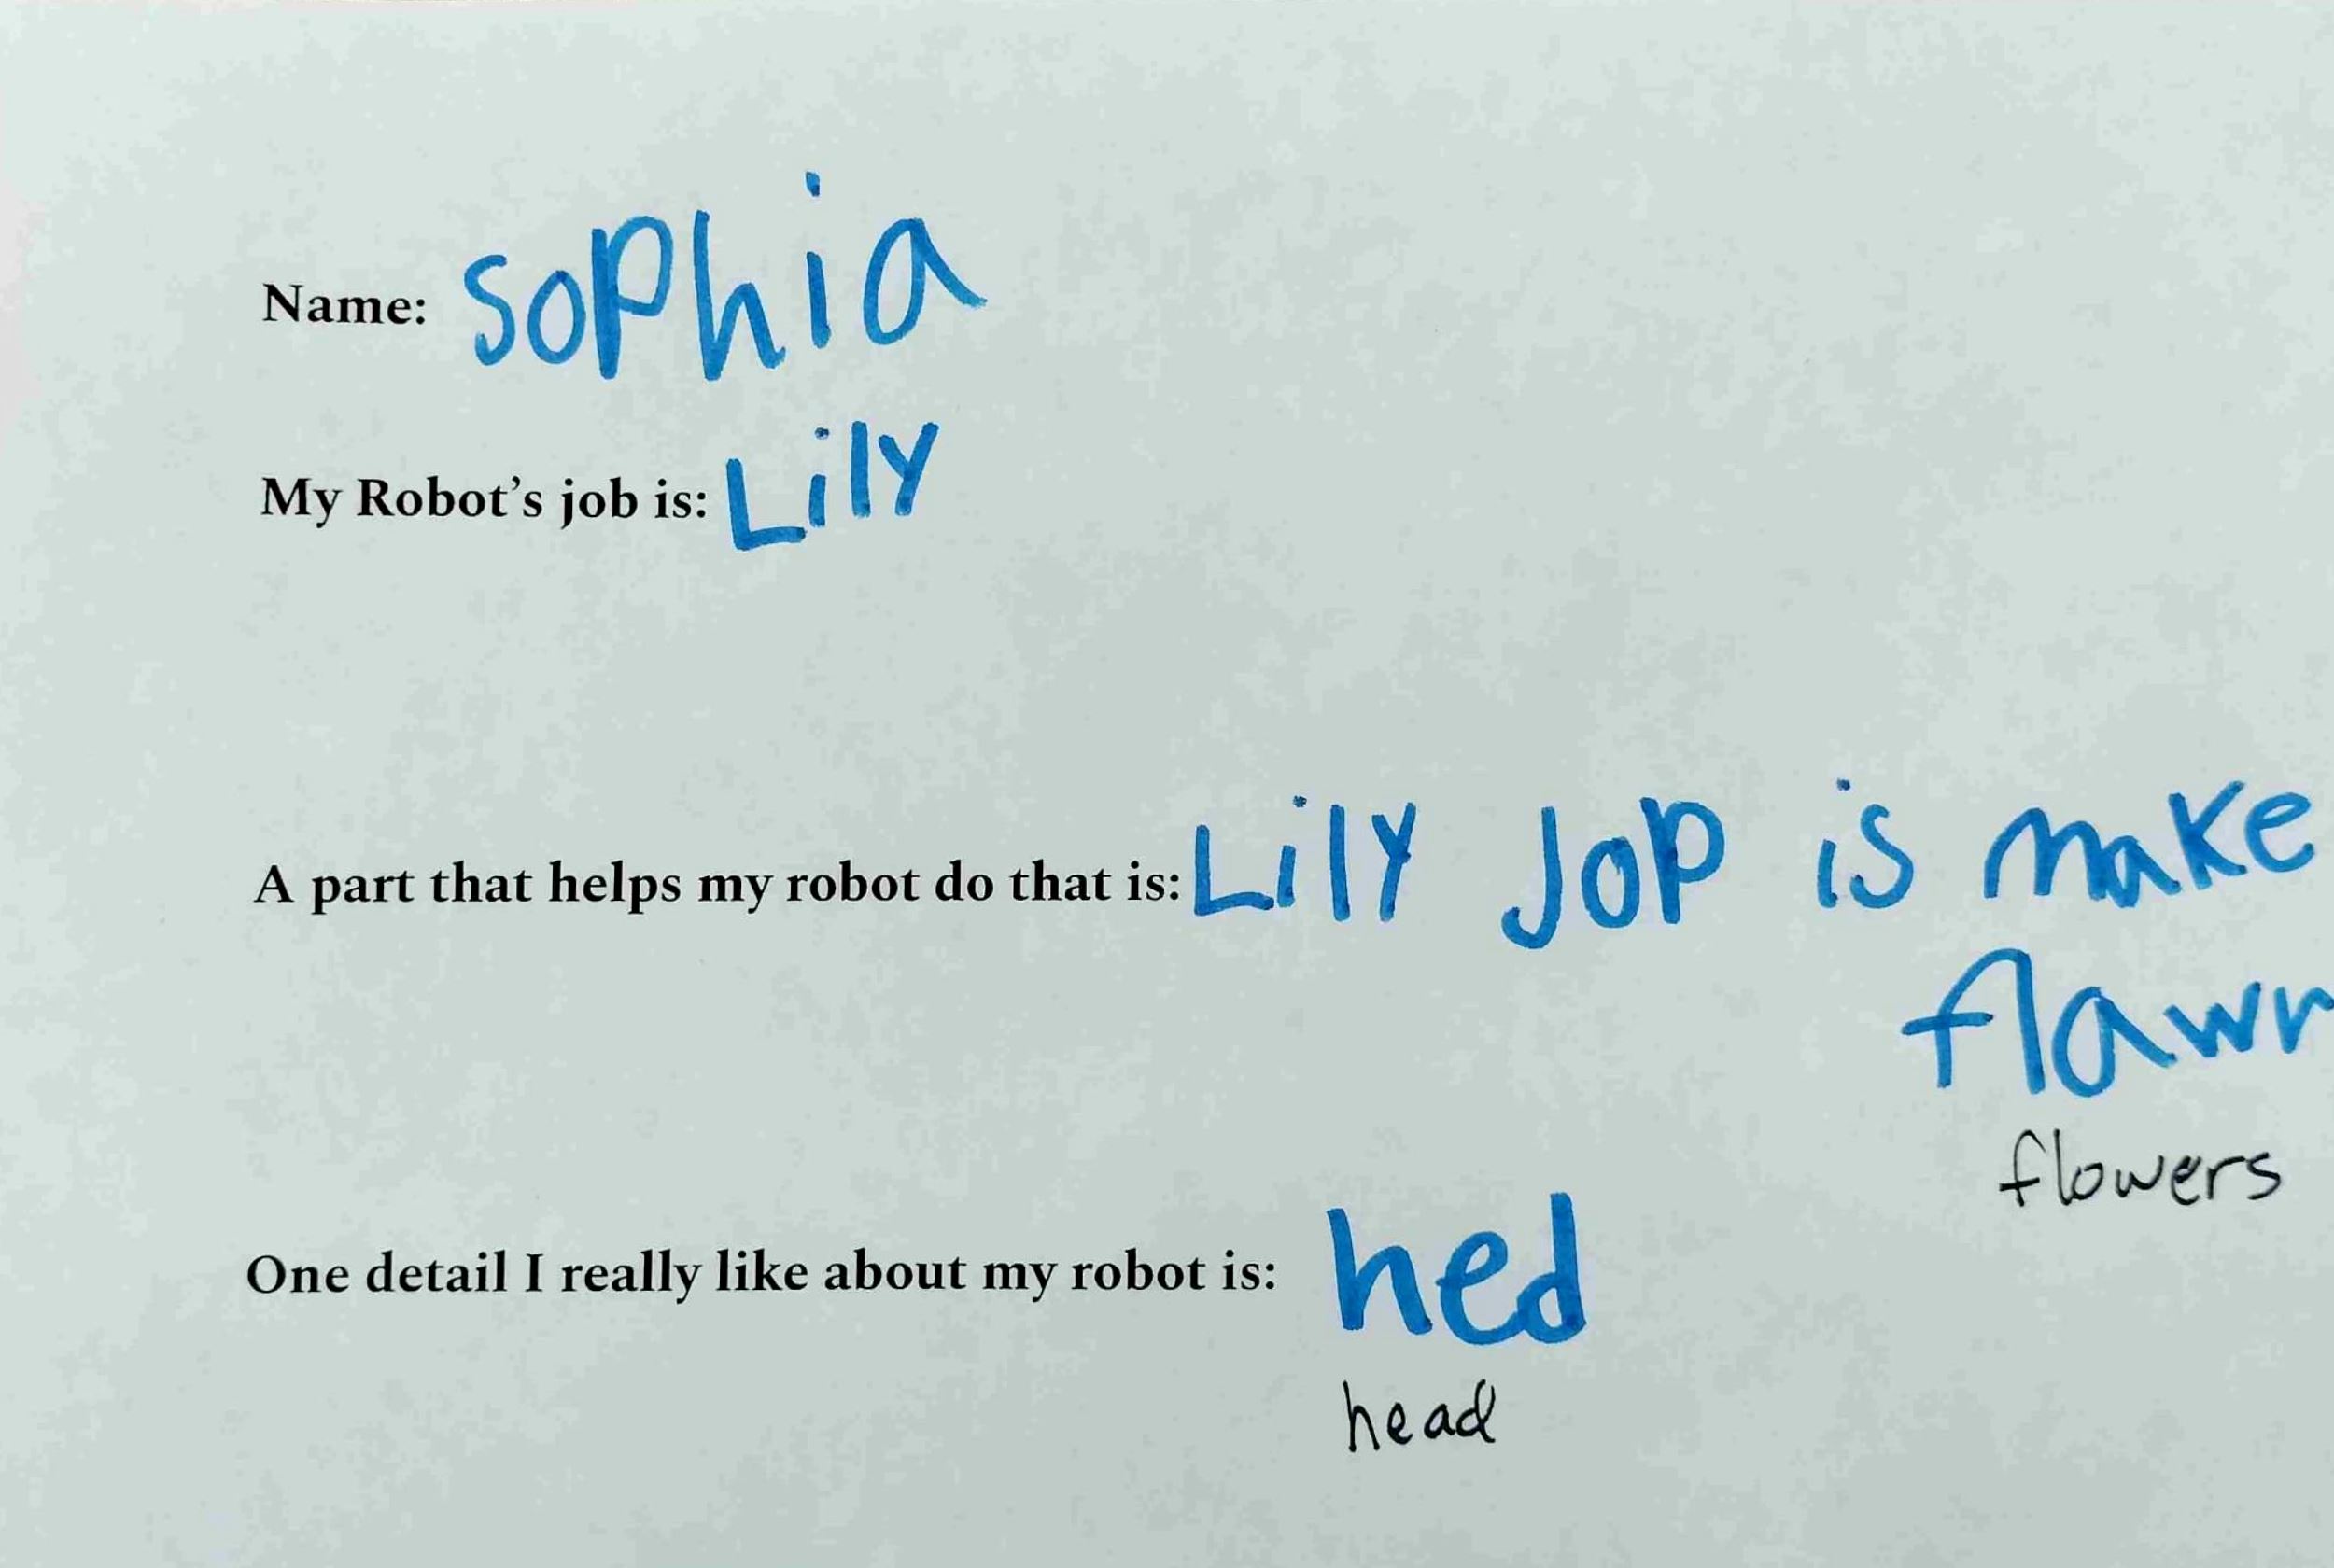 Name: Sophia
My Robot's job is: Lily
A part that helps my robot do that is: Lily Jop is make
flawr
flowers
One detail I really like about my robot is: hed
head